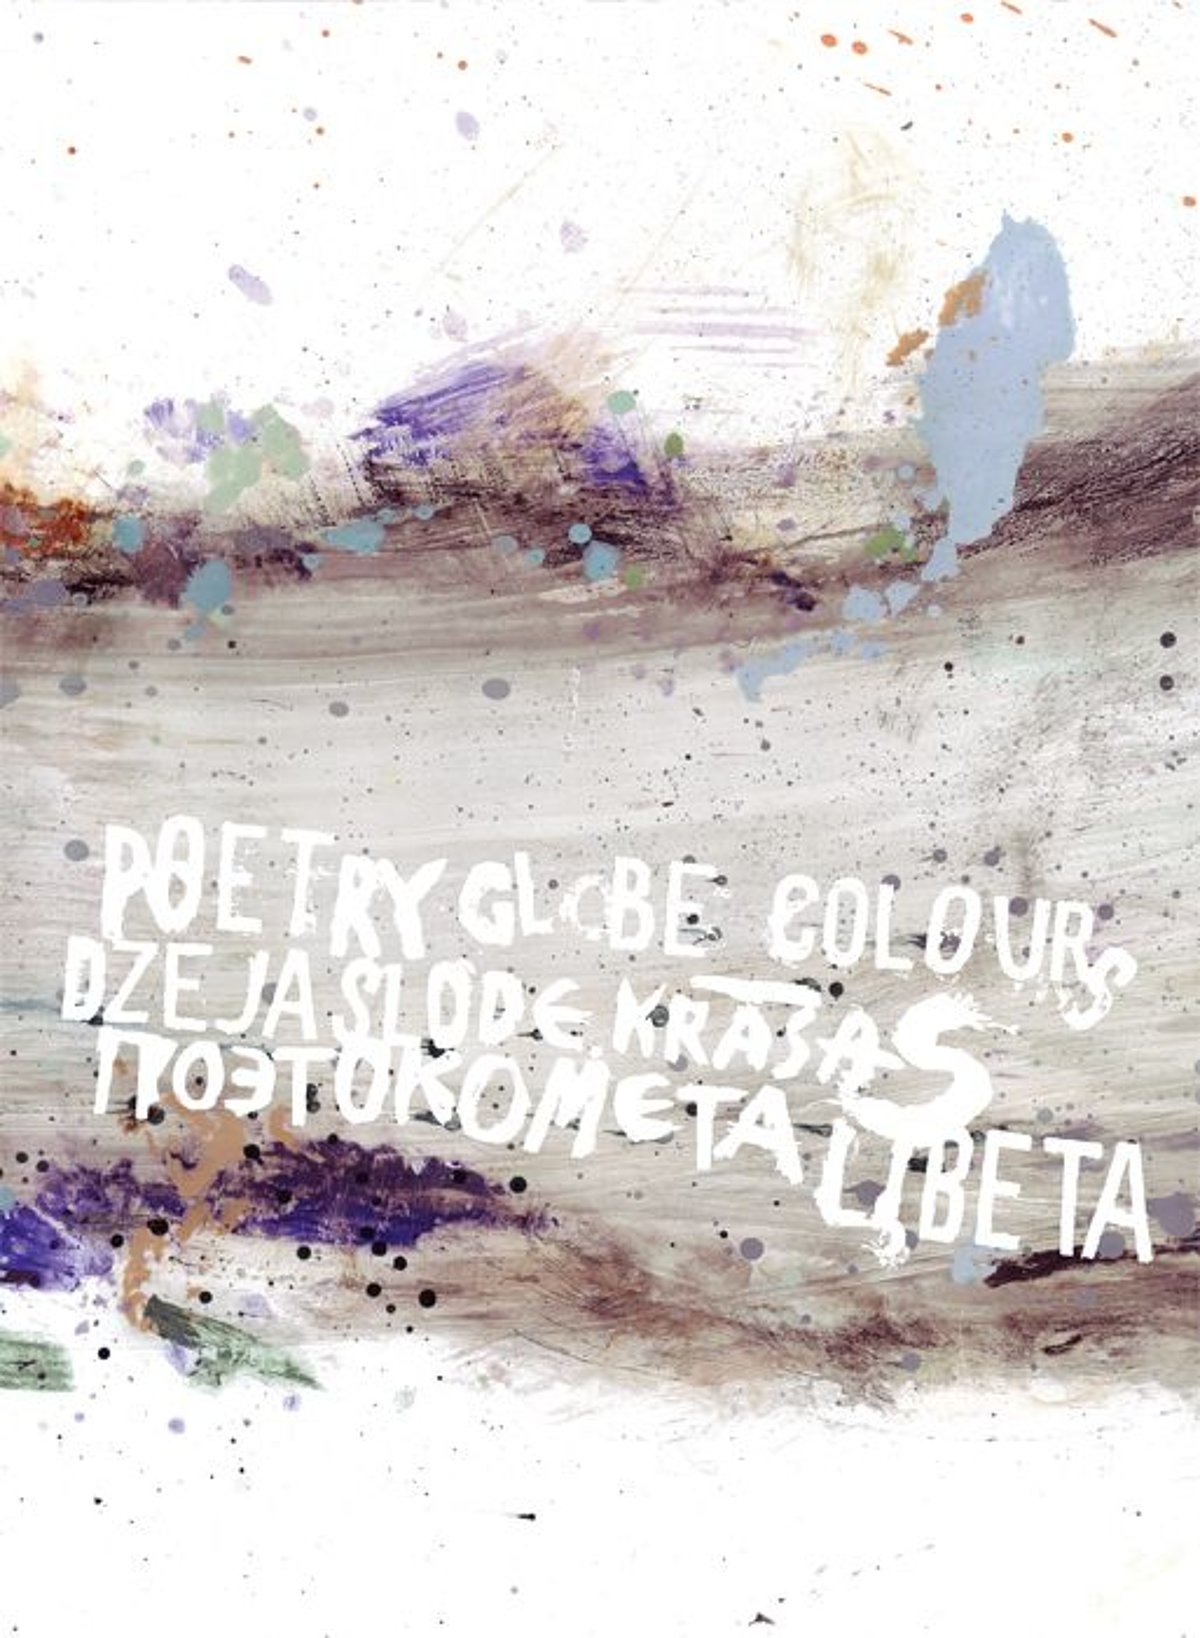 POETRY GLOBE COLOURS
DZEJA SLODE KRĀSAS
ПОЭТОКОМЕТА
LIBETA